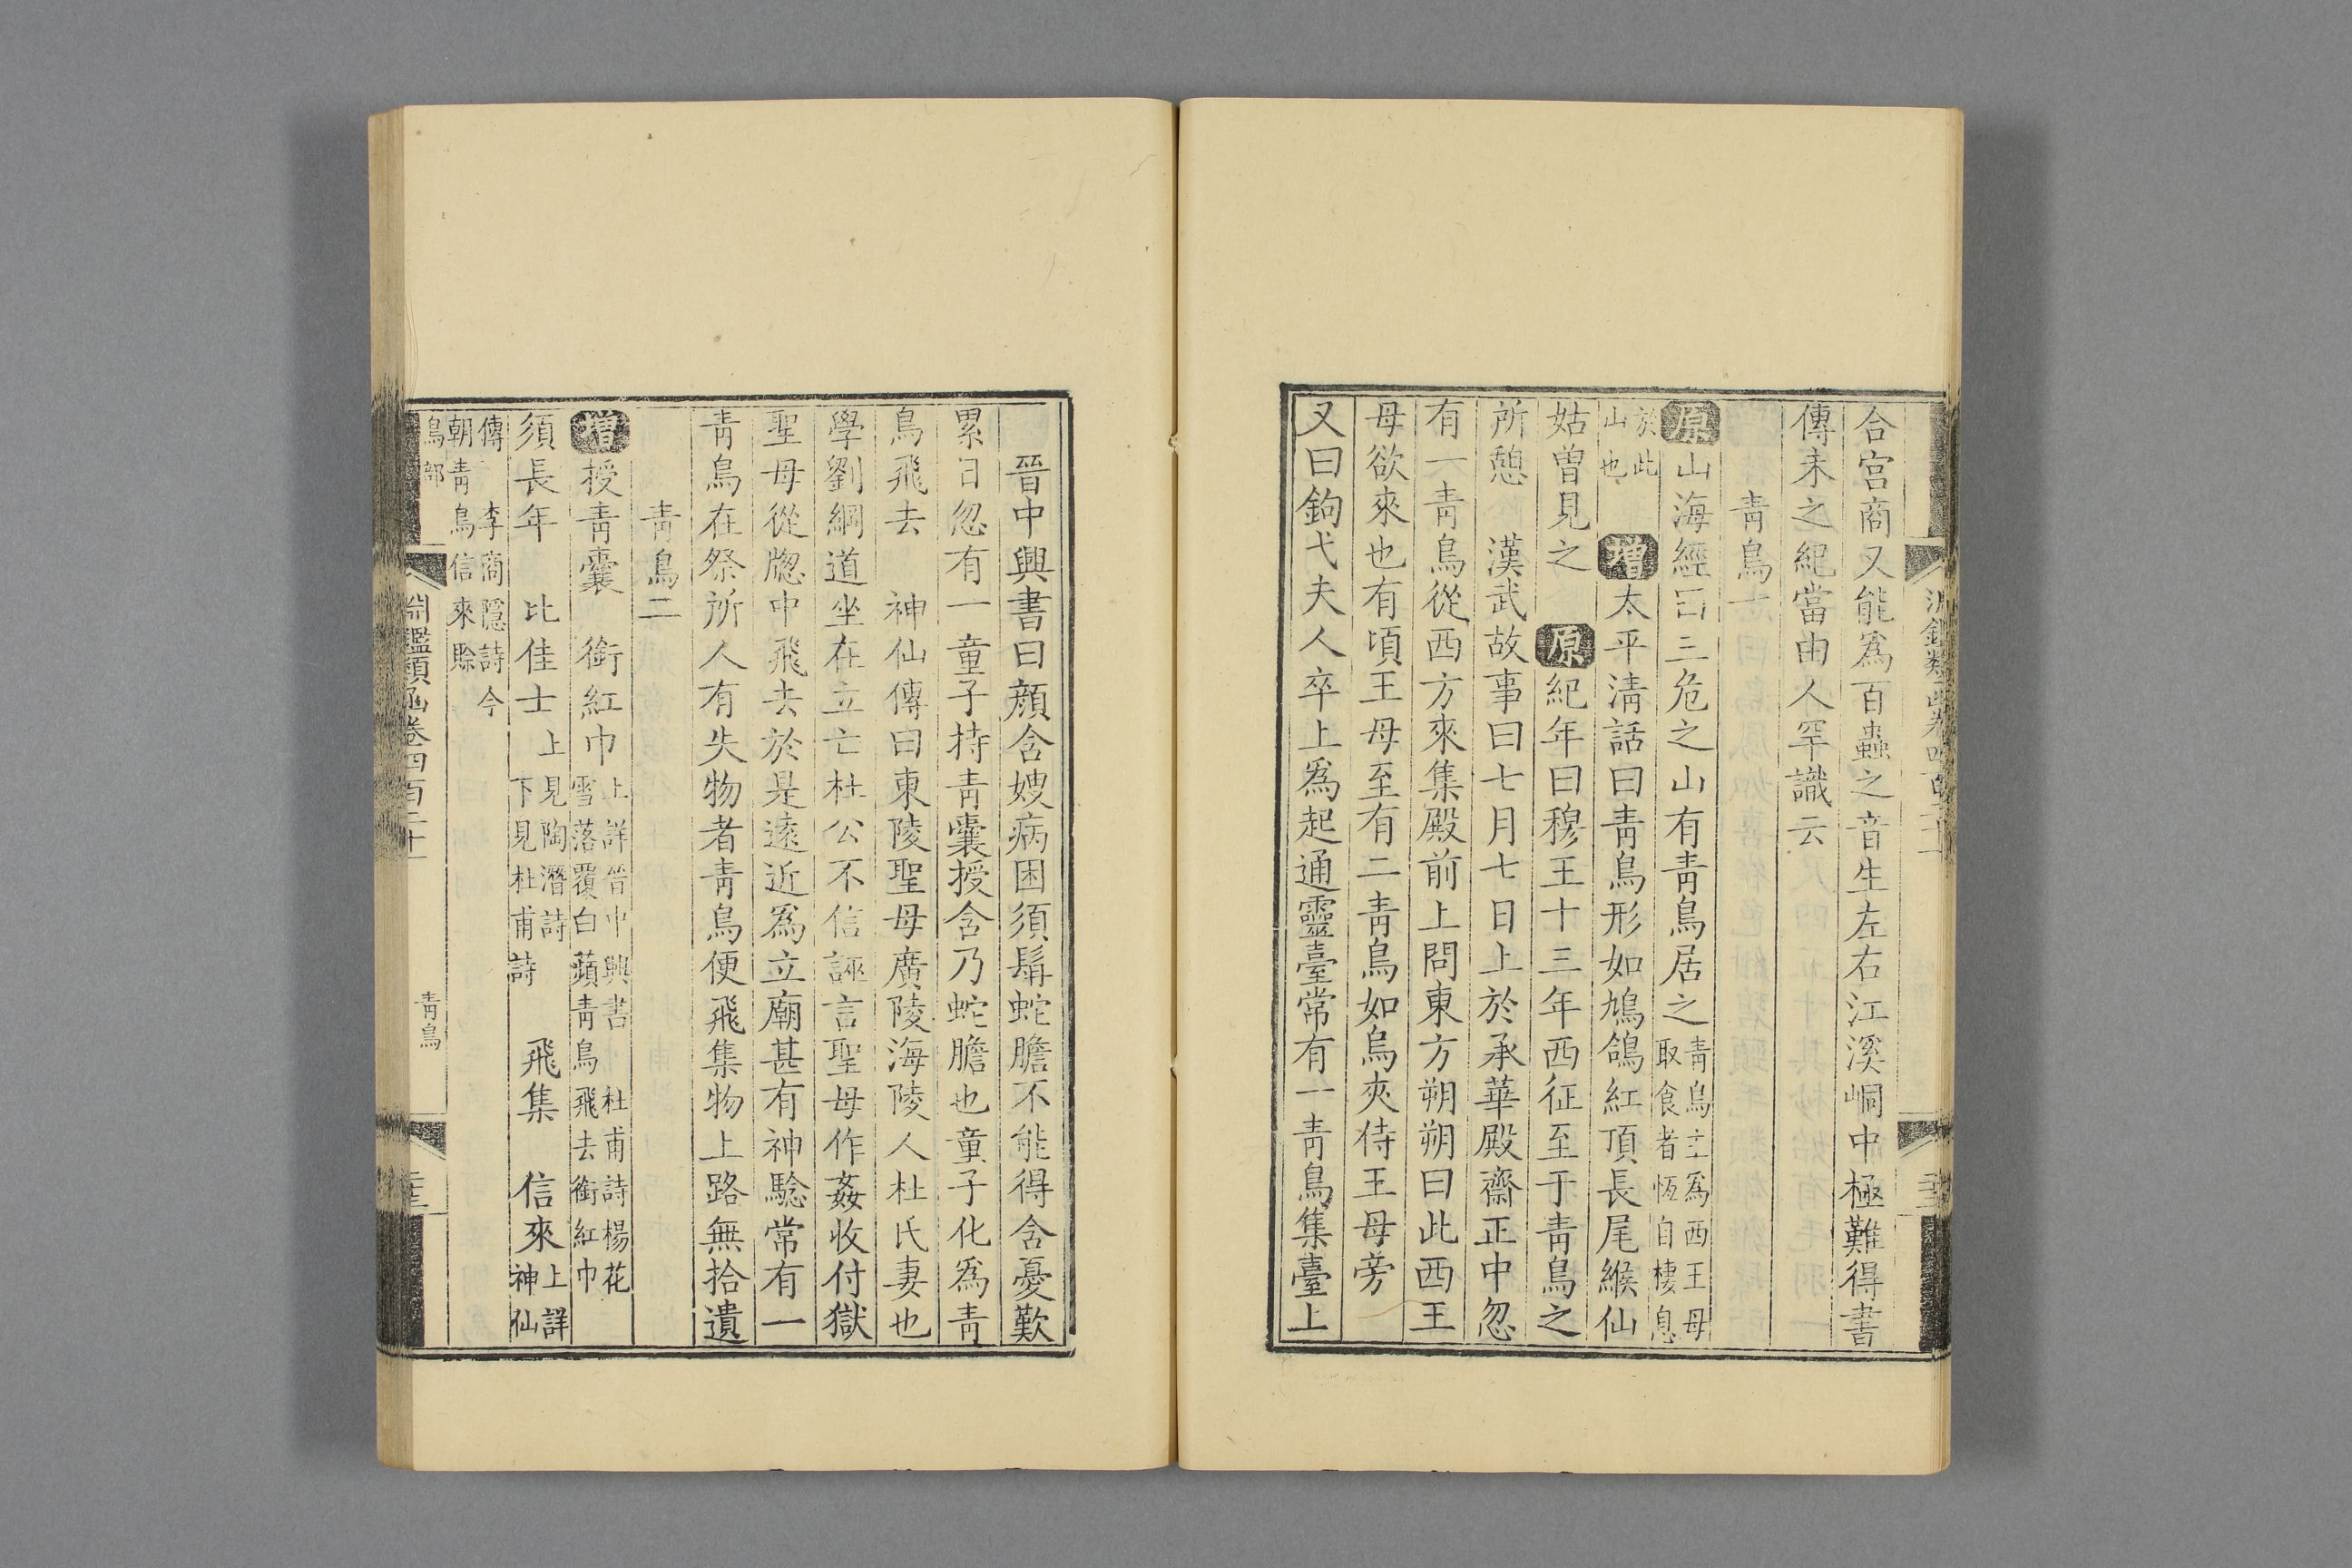 合宫商又能爲百蟲之音生左右江溪峒中極難得書
傳未之紀當由人罕識云
青鳥一
原山海經曰三危之山有青鳥居之青鳥主爲西王母取食者恆自棲息
於此山也 增太平清話曰青鳥形如鳩鴿紅頂長尾緱仙
姑曾見之 原紀年曰穆王十三年西征至于青鳥之
所憩 漢武故事曰七月七日上於承華殿齋正中忽
有一青鳥從西方來集殿前上問東方朔朔曰此西王
母欲來也有頃王母至有二青鳥如烏夾侍王母旁
又曰鉤弋夫人卒上爲起通靈臺常有一青鳥集臺上
晉中興書曰顔含嫂病困須髯蛇膽不能得含憂歎
累日忽有一童子持青囊授含乃蛇膽也童子化爲青
鳥飛去 神仙傳曰東陵聖母廣陵海陵人杜氏妻也
學劉綱道坐在立亡杜公不信誣言聖母作姦收付獄
聖母從牎中飛去於是遠近爲立廟甚有神驗常有一
青鳥在祭所人有失物者青鳥便飛集物上路無拾遺
青鳥二
增授青囊 銜紅巾上詳晉中興書 杜甫詩楊花雪落覆白蘋青鳥飛去銜紅巾
須長年 比佳士上見陶潛詩下見杜甫詩 飛集 信來上詳神仙
傳 李商隱詩今朝青鳥信來賒
鳥部 淵鑑類函卷四百二十一 青鳥